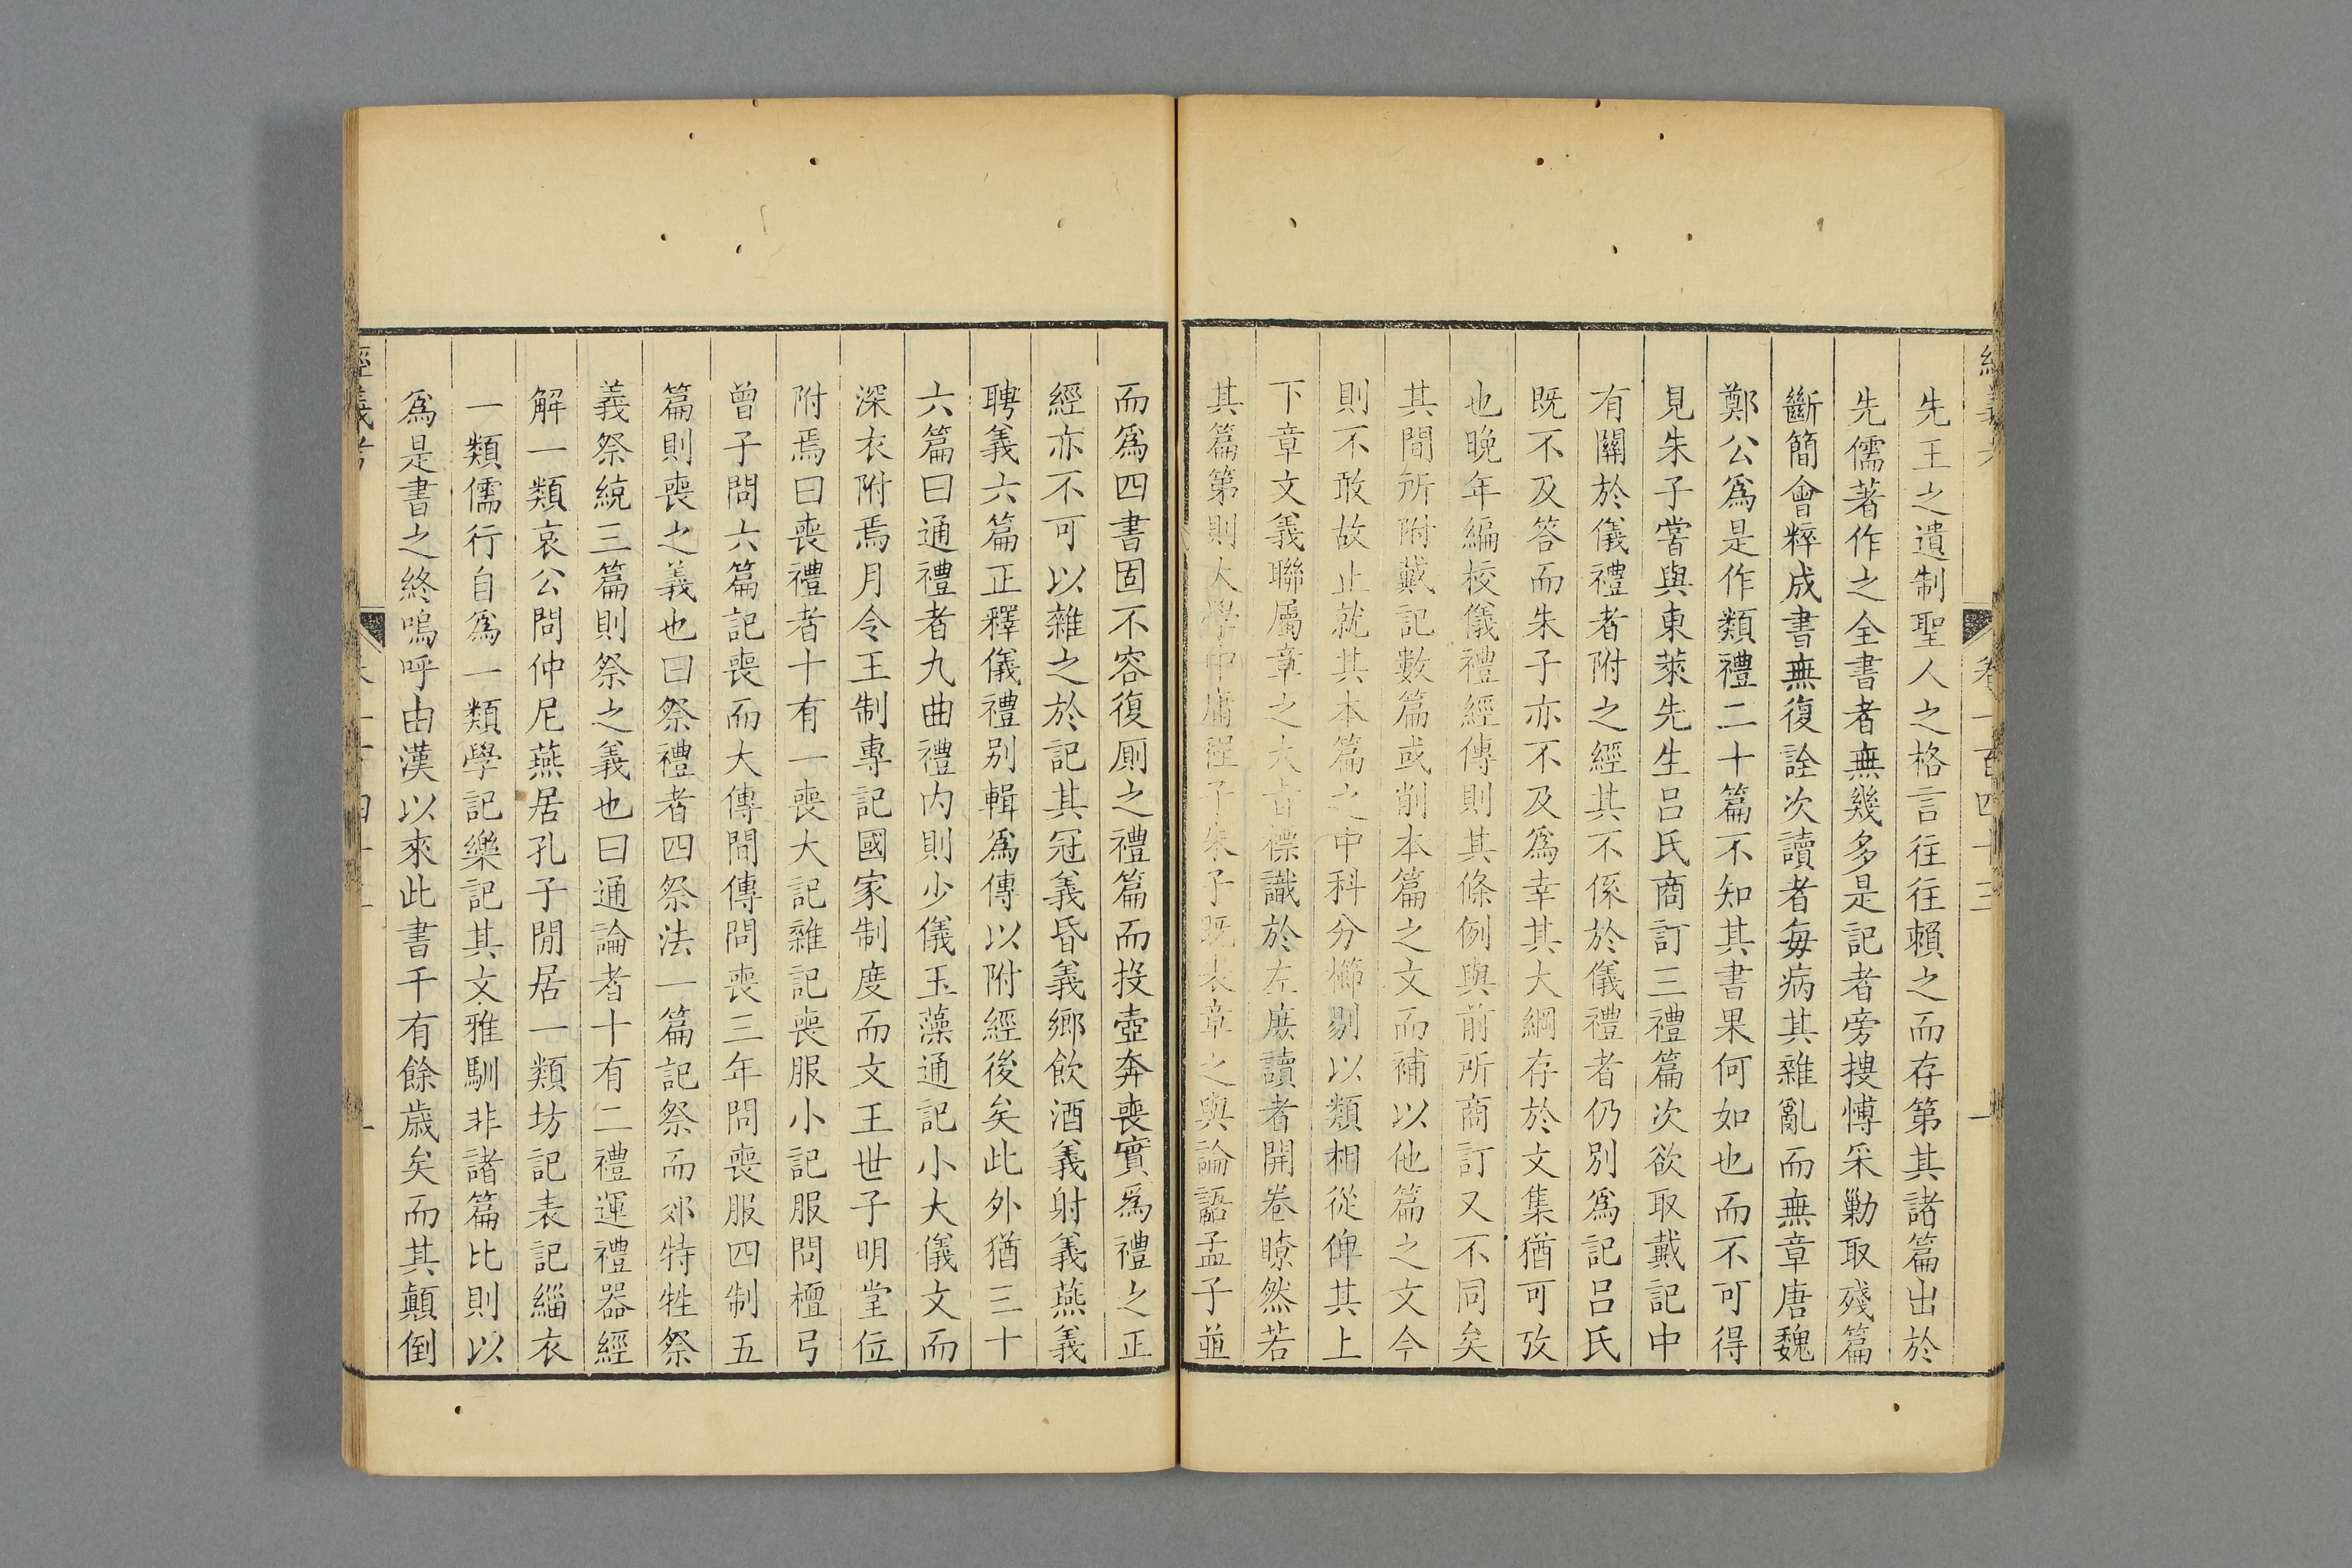 經義考 卷一百四十三
先王之遺制聖人之格言往往賴之而存第其諸篇出於
先儒著作之全書者無幾多是記者旁搜愽采勦取殘篇
斷簡會粹成書無復詮次讀者每病其雜亂而無章唐魏
鄭公爲是作類禮二十篇不知其書果何如也而不可得
見朱子嘗與東萊先生呂氏商訂三禮篇次欲取戴記中
有關於儀禮者附之經其不係於儀禮者仍別爲記呂氏
既不及答而朱子亦不及爲幸其大綱存於文集猶可攷
也晚年編校儀禮經傳則其條例與前所商訂又不同矣
其間所附戴記數篇或削本篇之文而補以他篇之文今
則不敢故止就其本篇之中科分櫛剔以類相從俾其上
下章文義聯屬章之大旨標識於左庶讀者開卷瞭然若
其篇第則大學中庸程子朱子既表章之與論語孟子並
而爲四書固不容復厠之禮篇而投壺奔喪實爲禮之正
經亦不可以雜之於記其冠義昏義鄉飲酒義射義燕義
聘義六篇正釋儀禮別輯爲傳以附經後矣此外猶三十
六篇曰通禮者九曲禮内則少儀玉藻通記小大儀文而
深衣附焉月令王制專記國家制度而文王世子明堂位
附焉曰喪禮者十有一喪大記雜記喪服小記服問檀弓
曾子問六篇記喪而大傳間傳問喪三年問喪服四制五
篇則喪之義也曰祭禮者四祭法一篇記祭而郊特牲祭
義祭統三篇則祭之義也曰通論者十有二禮運禮器經
解一類哀公問仲尼燕居孔子閒居一類坊記表記緇衣
一類儒行自爲一類學記樂記其文雅馴非諸篇比則以
爲是書之終嗚呼由漢以來此書千有餘歲矣而其顛倒
經義考